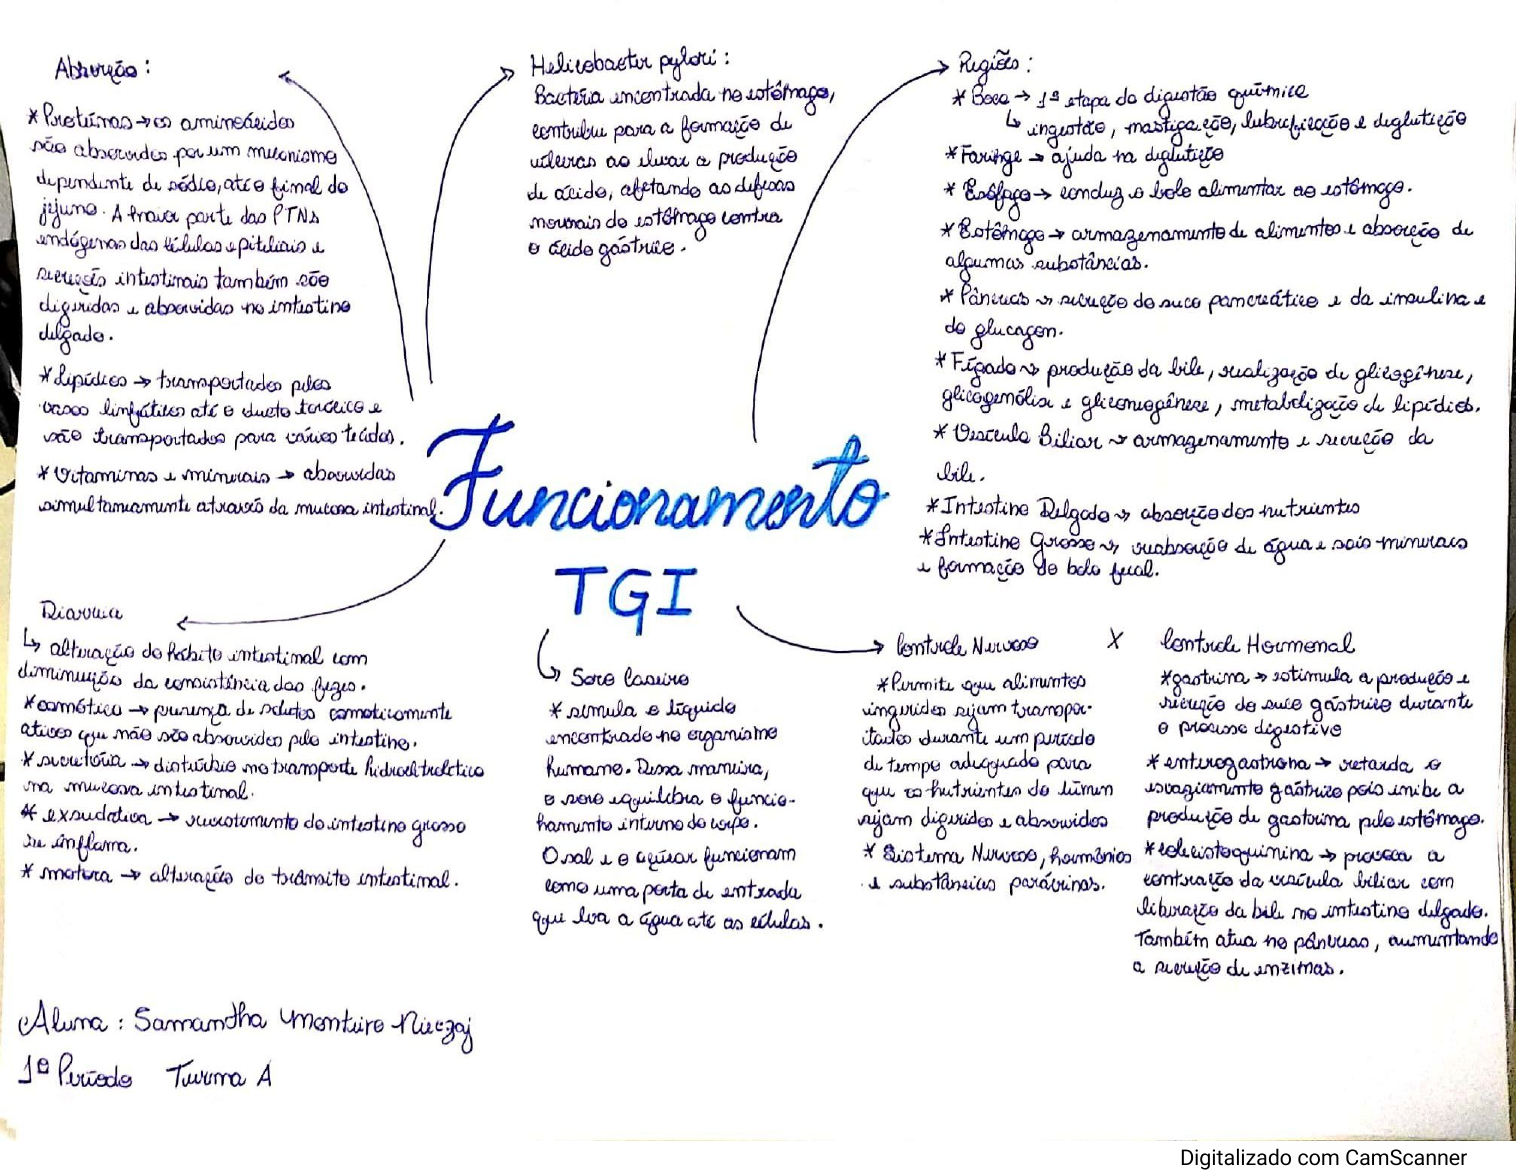 Absorção:
* Proteínas → os aminoácidos
são absorvidos por um mecanismo
dependente de sódio, até o final do
jejuno. A maior parte das PTNs
endógenas das células epiteliais e
secreções intestinais também são
digeridas e absorvidas no intestino
delgado.
* Lipídios → transportados pelos
vasos linfáticos até o ducto torácico e
são transportados para vários tecidos.
* Vitaminas e minerais → absorvidas
simultaneamente através da mucosa intestinal.
Helicobacter pylori:
Bactéria encontrada no estômago,
contribui para a formação de
úlceras ao elevar a produção
de ácido, afetando as defesas
normais do estômago contra
o ácido gástrico.
Regiões:
* Boca → 1ª etapa da digestão química
↳ ingestão, mastigação, lubrificação e deglutição
* Faringe → ajuda na deglutição
* Esôfago → conduz o bolo alimentar ao estômago.
* Estômago → armazenamento de alimentos e absorção de
algumas substâncias.
* Pâncreas → secreção do suco pancreático e da insulina e
do glucagon.
* Fígado → produção da bile, realização de glicogênese,
glicogenólise e gliconeogênese, metabolização de lipídios.
* Vesícula Biliar → armazenamento e secreção da
bile.
* Intestino Delgado → absorção dos nutrientes
* Intestino Grosso → reabsorção de água e sais minerais
e formação do bolo fecal.
Funcionamento
TGI
Diarreia
↳ alteração do hábito intestinal com
diminuição da consistência das fezes.
* osmótica → presença de solutos osmoticamente
ativos que não são absorvidos pelo intestino.
* secretória → distúrbio no transporte hidroeletrolítico
na mucosa intestinal.
* exsudativa → revestimento do intestino grosso
se inflama.
* motora → alteração do trânsito intestinal.
Soro Caseiro
* simula o líquido
encontrado no organismo
humano. Dessa maneira,
o soro equilibra o funcio-
namento interno do corpo.
O sal e o açúcar funcionam
como uma porta de entrada
que leva a água até as células.
Controle Nervoso X Controle Hormonal
* Permite que alimentos
ingeridos sejam transpor-
tados durante um período
de tempo adequado para
que os nutrientes do lúmen
sejam digeridos e absorvidos
* Sistema Nervoso, hormônios
e substâncias parácrinas.
* gastrina → estimula a produção e
secreção do suco gástrico durante
o processo digestivo
* enterogastrona → retarda o
esvaziamento gástrico pois inibe a
produção de gastrina pelo estômago.
* colecistoquinina → provoca a
contração da vesícula biliar com
liberação da bile no intestino delgado.
Também atua no pâncreas, aumentando
a secreção de enzimas.
Aluna: Samantha Monteiro
1º Período Turma A
Digitalizado com CamScanner